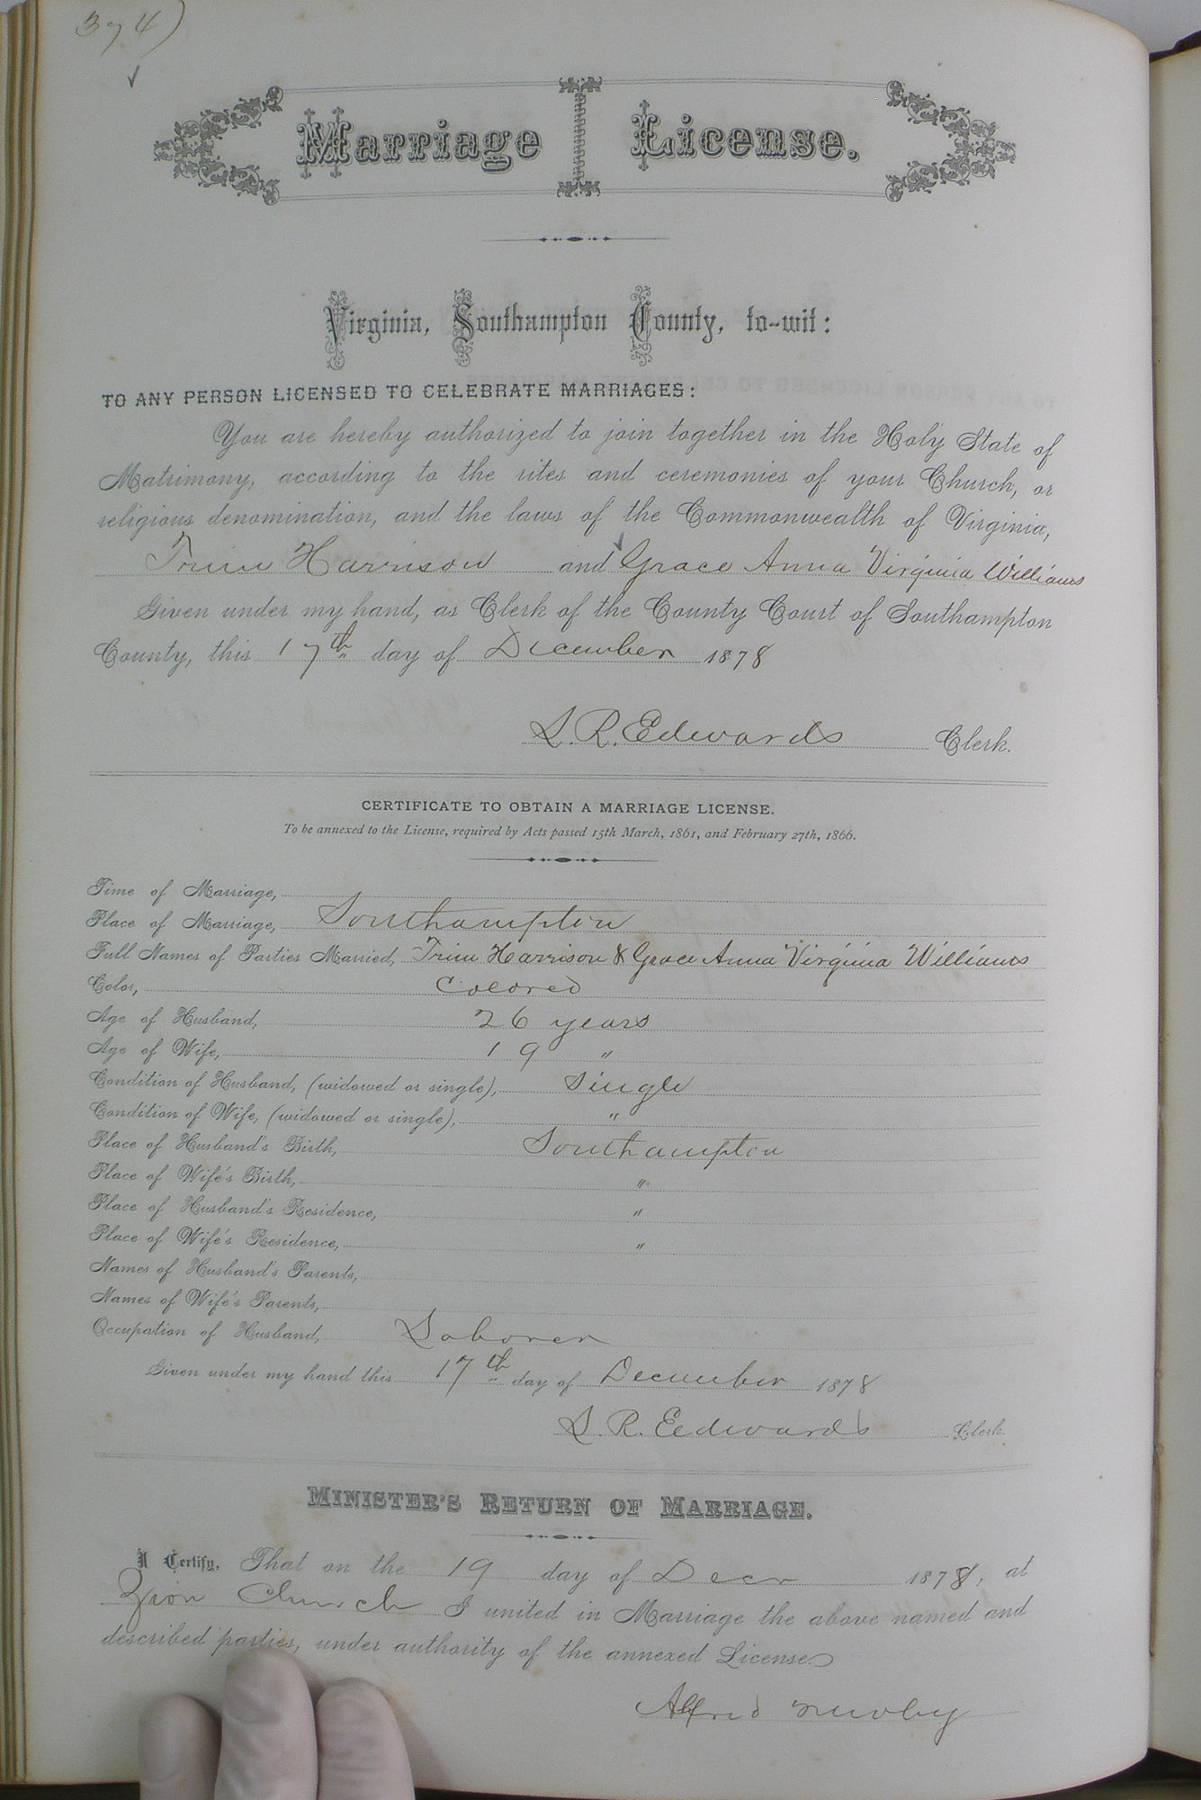 374)
Marriage License.
Virginia, Southampton County, to-wit:
TO ANY PERSON LICENSED TO CELEBRATE MARRIAGES:
You are hereby authorized to join together in the Holy State of
Matrimony, according to the rites and ceremonies of your Church, or
religious denomination, and the laws of the Commonwealth of Virginia,
Trim Harrison and Grace Anna Virginia Williams
Given under my hand, as Clerk of the County Court of Southampton
County, this 17th day of December 1878
L. R. Edwards Clerk.
CERTIFICATE TO OBTAIN A MARRIAGE LICENSE.
To be annexed to the License, required by Acts passed 15th March, 1861, and February 27th, 1866.
Time of Marriage,
Place of Marriage, Southampton
Full Names of Parties Married, Trim Harrison & Grace Anna Virginia Williams
Color, Colored
Age of Husband, 26 years
Age of Wife, 19 "
Condition of Husband, (widowed or single), Single
Condition of Wife, (widowed or single), "
Place of Husband's Birth, Southampton
Place of Wife's Birth, "
Place of Husband's Residence, "
Place of Wife's Residence, "
Names of Husband's Parents,
Names of Wife's Parents,
Occupation of Husband, Laborer
Given under my hand this 17th day of December 1878
L. R. Edwards Clerk
MINISTER'S RETURN OF MARRIAGE.
I Certify, That on the 19 day of Decr 1878, at
Zion Church I united in Marriage the above named and
described parties, under authority of the annexed License
Alfred Newby